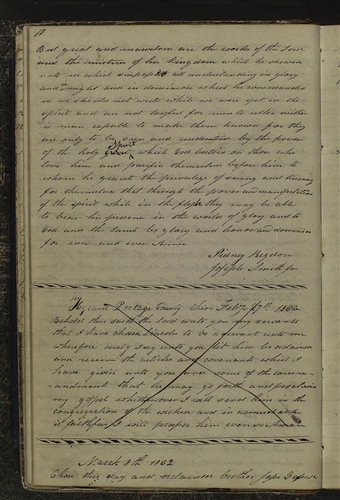 10
But great and marvelous are the works of the Lord
and the mysteries of his kingdom which he shewed
unto us which surpasseth all understanding in glory
and in might and in dominion which he commanded
us we should not write while we were yet in the
spirit and are not lawful for men to utter neither
is man capable to make them known for they
are only to be seen and understood by the power
of the holy Spirit which God bestows on those who
love him and purifies themselves before him to
whom he grants the privilege of seeing and knowing
for themselves that through the power and manifestation
of the spirit while in the flesh they may be able
to bear his presence in the world of glory and to
God and the Lamb be glory and honor and dominion
for ever and ever Amen
Sidney Rigdon
Joseph Smith Jr
Hiram Portage County Ohio Feby 27th. 1832
Behold thus saith the Lord unto you my servants
that I have chosen Lincoln to be a servant unto me
wherefore verily I say unto you let him be ordained
and receive the articles and covenants which I
have given unto you over some of the comm-
andments that he may go forth and proclaim
my gospel whithersoever I will send him in the
congregation of the wicked and in as much as
is faithful I will prosper him even so Amen
March 8th 1832
Chose this day and ordained brother Jesse Gause